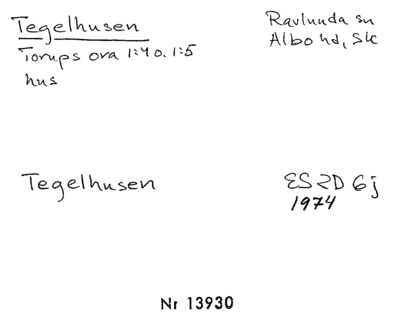 Tegelhusen
Ravlunda sn
Albo hd, Sk
Torups ora 1:4 o. 1:5
hus
Tegelhusen
ES 2D 6j
1974
Nr 13930